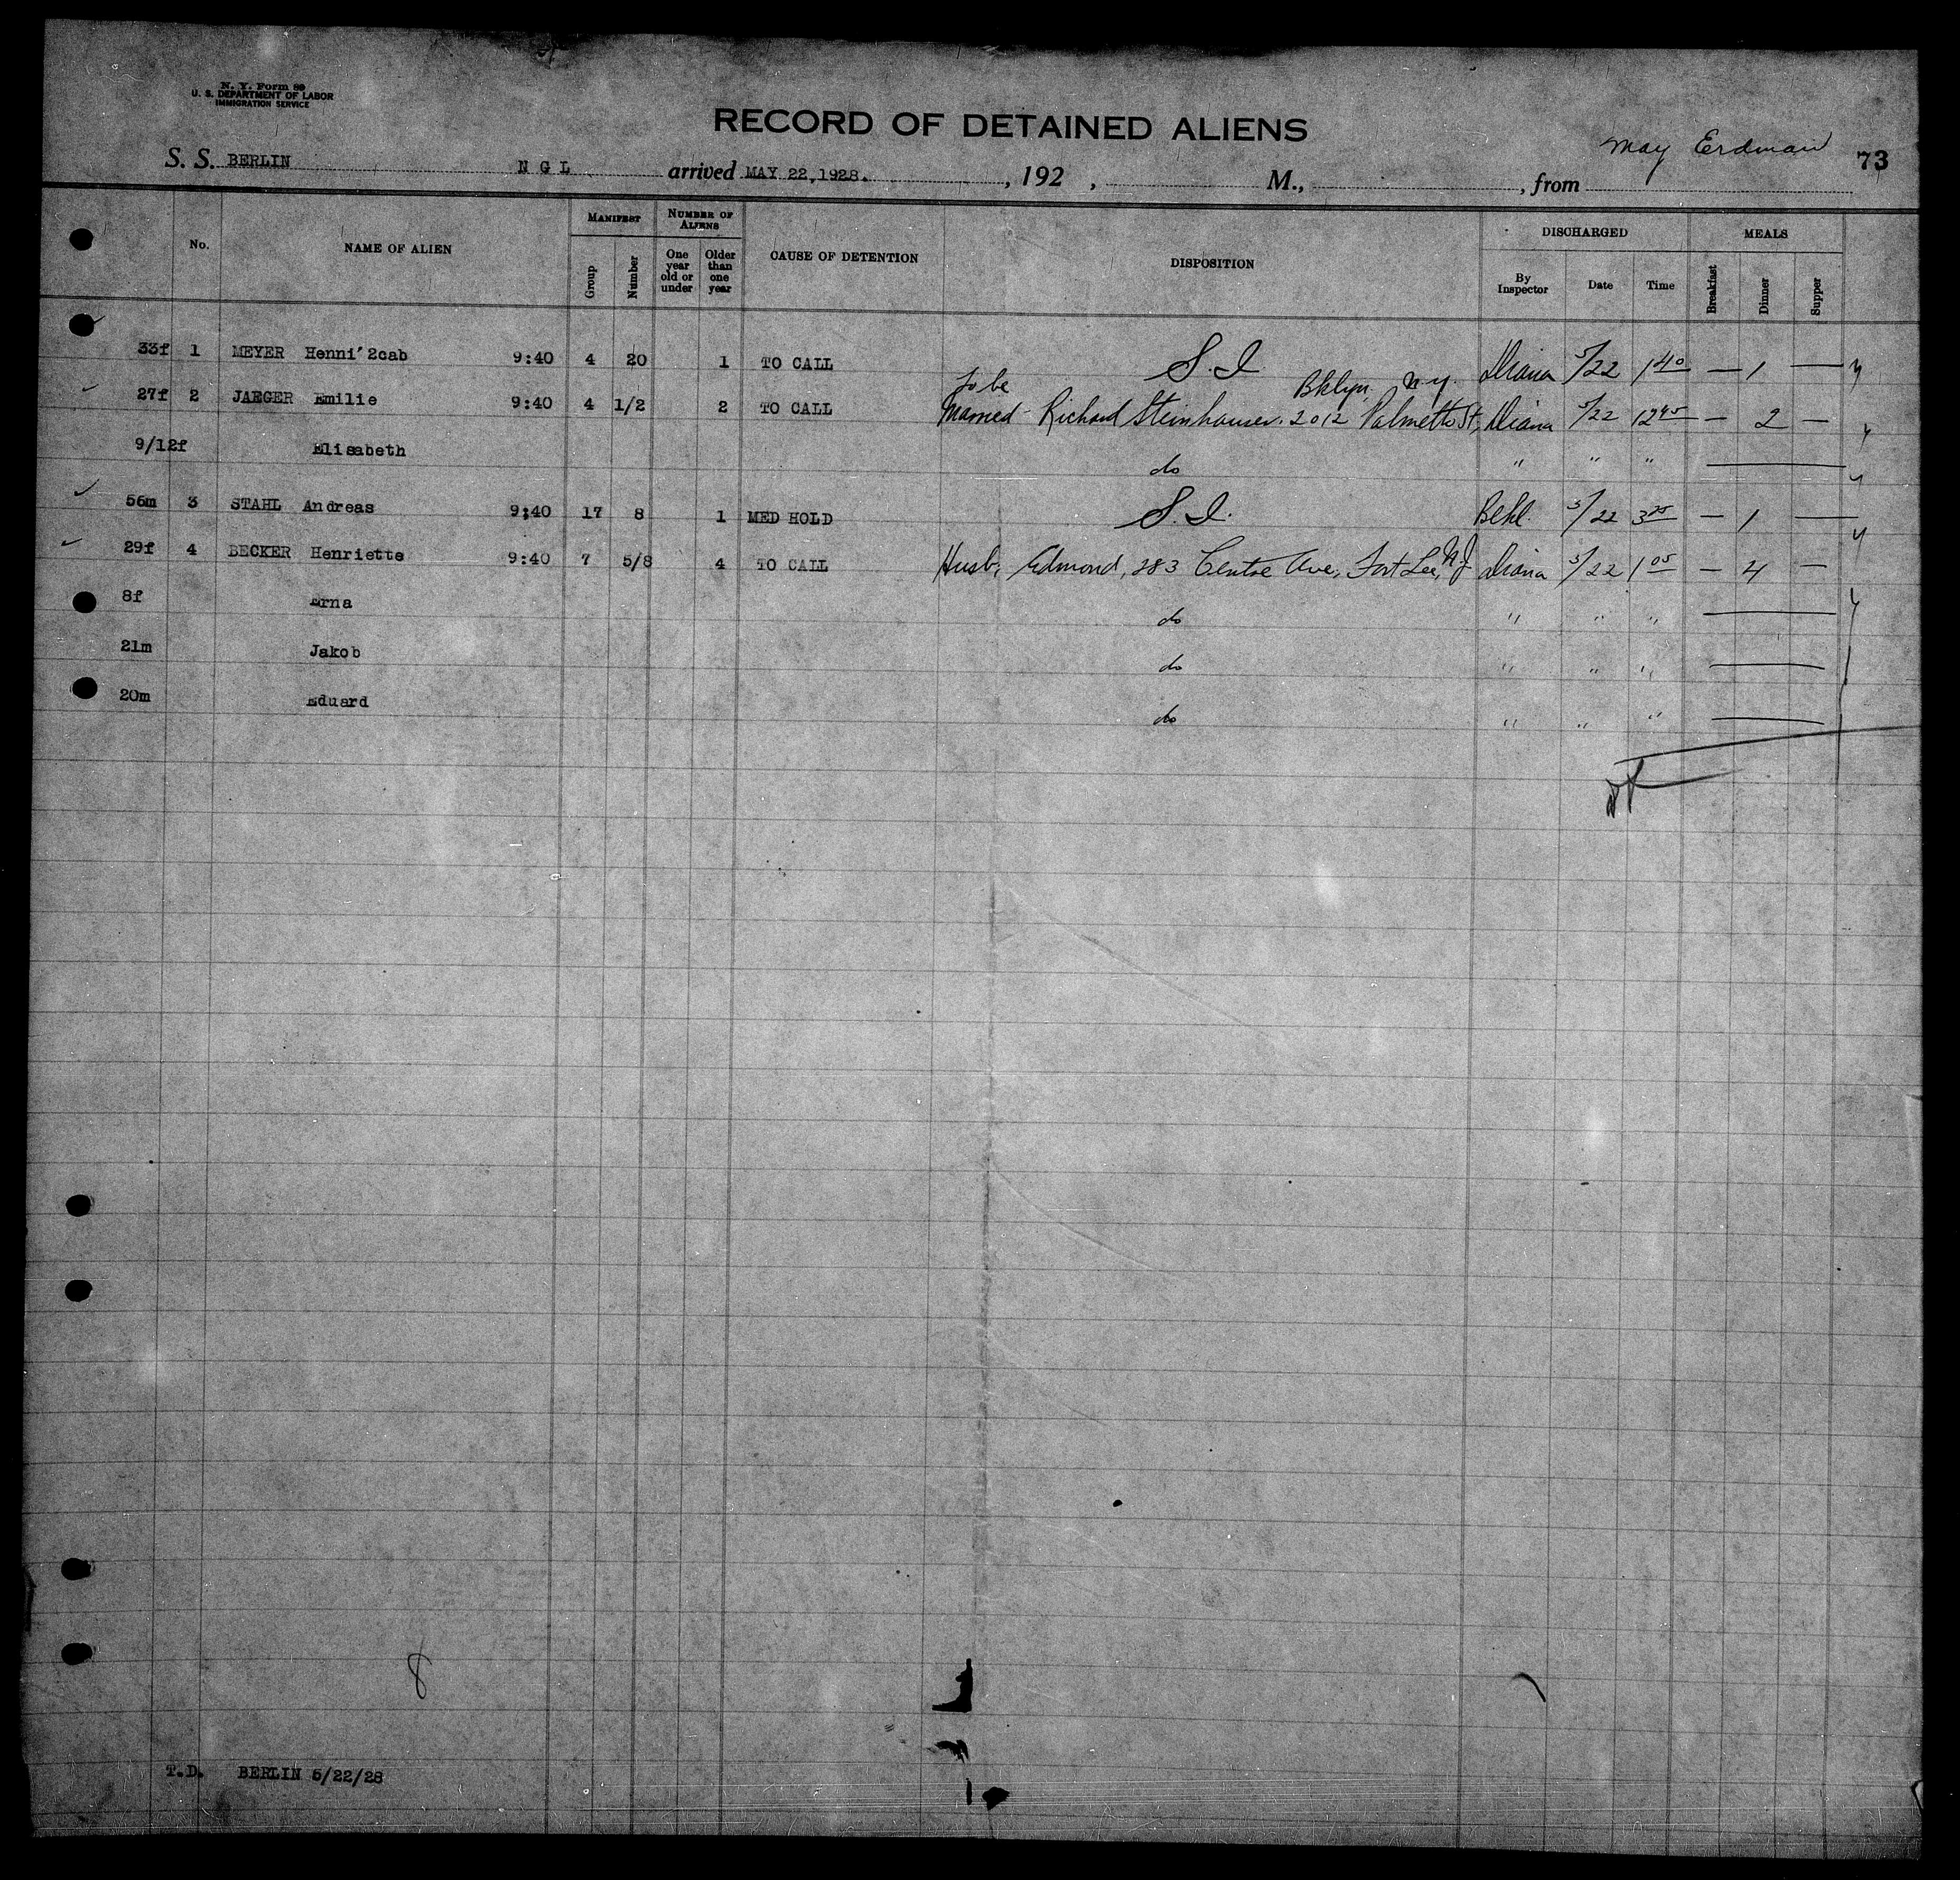 N. Y. Form 89
U. S. DEPARTMENT OF LABOR
IMMIGRATION SERVICE
RECORD OF DETAINED ALIENS
May Erdman 73
S. S. BERLIN N G L arrived MAY 22,1928. , 192 , M., , from
No. NAME OF ALIEN MANIFEST Group Number NUMBER OF ALIENS One year old or under Older than one year CAUSE OF DETENTION DISPOSITION DISCHARGED By Inspector Date Time MEALS Breakfast Dinner Supper
33f 1 MEYER Henni' 2cab 9:40 4 20 1 TO CALL S. I. Diana 5/22 1 40 — 1 —
To be Bklyn. N.Y.
27f 2 JAEGER Emilie 9:40 4 1/2 2 TO CALL Married - Richard Steinhauser. 2012 Palmetto St, Diana 5/22 12 45 — 2 —
9/12f Elisabeth do " " "
56m 3 STAHL Andreas 9:40 17 8 1 MED HOLD S. I. Behl. 5/22 3 25 — 1 —
29f 4 BECKER Henriette 9:40 7 5/8 4 TO CALL Husb, Edmond, 283 Centre Ave, Fort Lee, N.J Diana 5/22 1 05 — 4 —
8f Erna do " " "
21m Jakob do " " "
20m Eduard do " " "
8
T.D. BERLIN 5/22/28